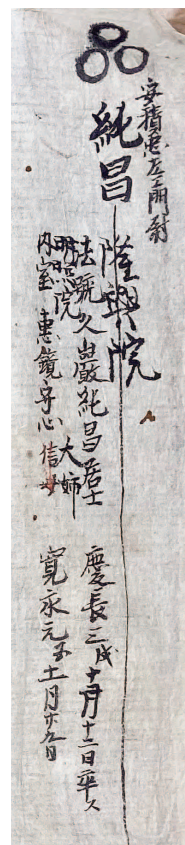 安積忠左エ門尉
純昌
隆興院
法號久岩嚴純昌居士
明照院
内室 惠鏡守心信女
大姉
慶長三戌十月十二日卒ス
寛永元子十一月廿九日